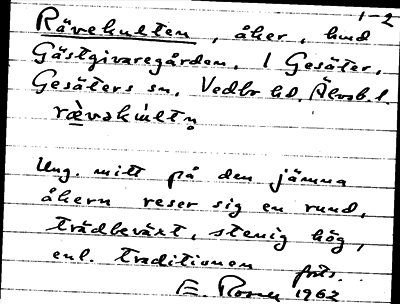 1-2
Rävekulten, åker, hmd
Gästgivaregården, 1 Gesäter,
Gesäters sn, Vedbo hd, Älvsb. l.
Ung. mitt på den jämna
åkern reser sig en rund,
trädbeväxt, stenig hög,
enl. traditionen
forts.
E. Rosen 1962